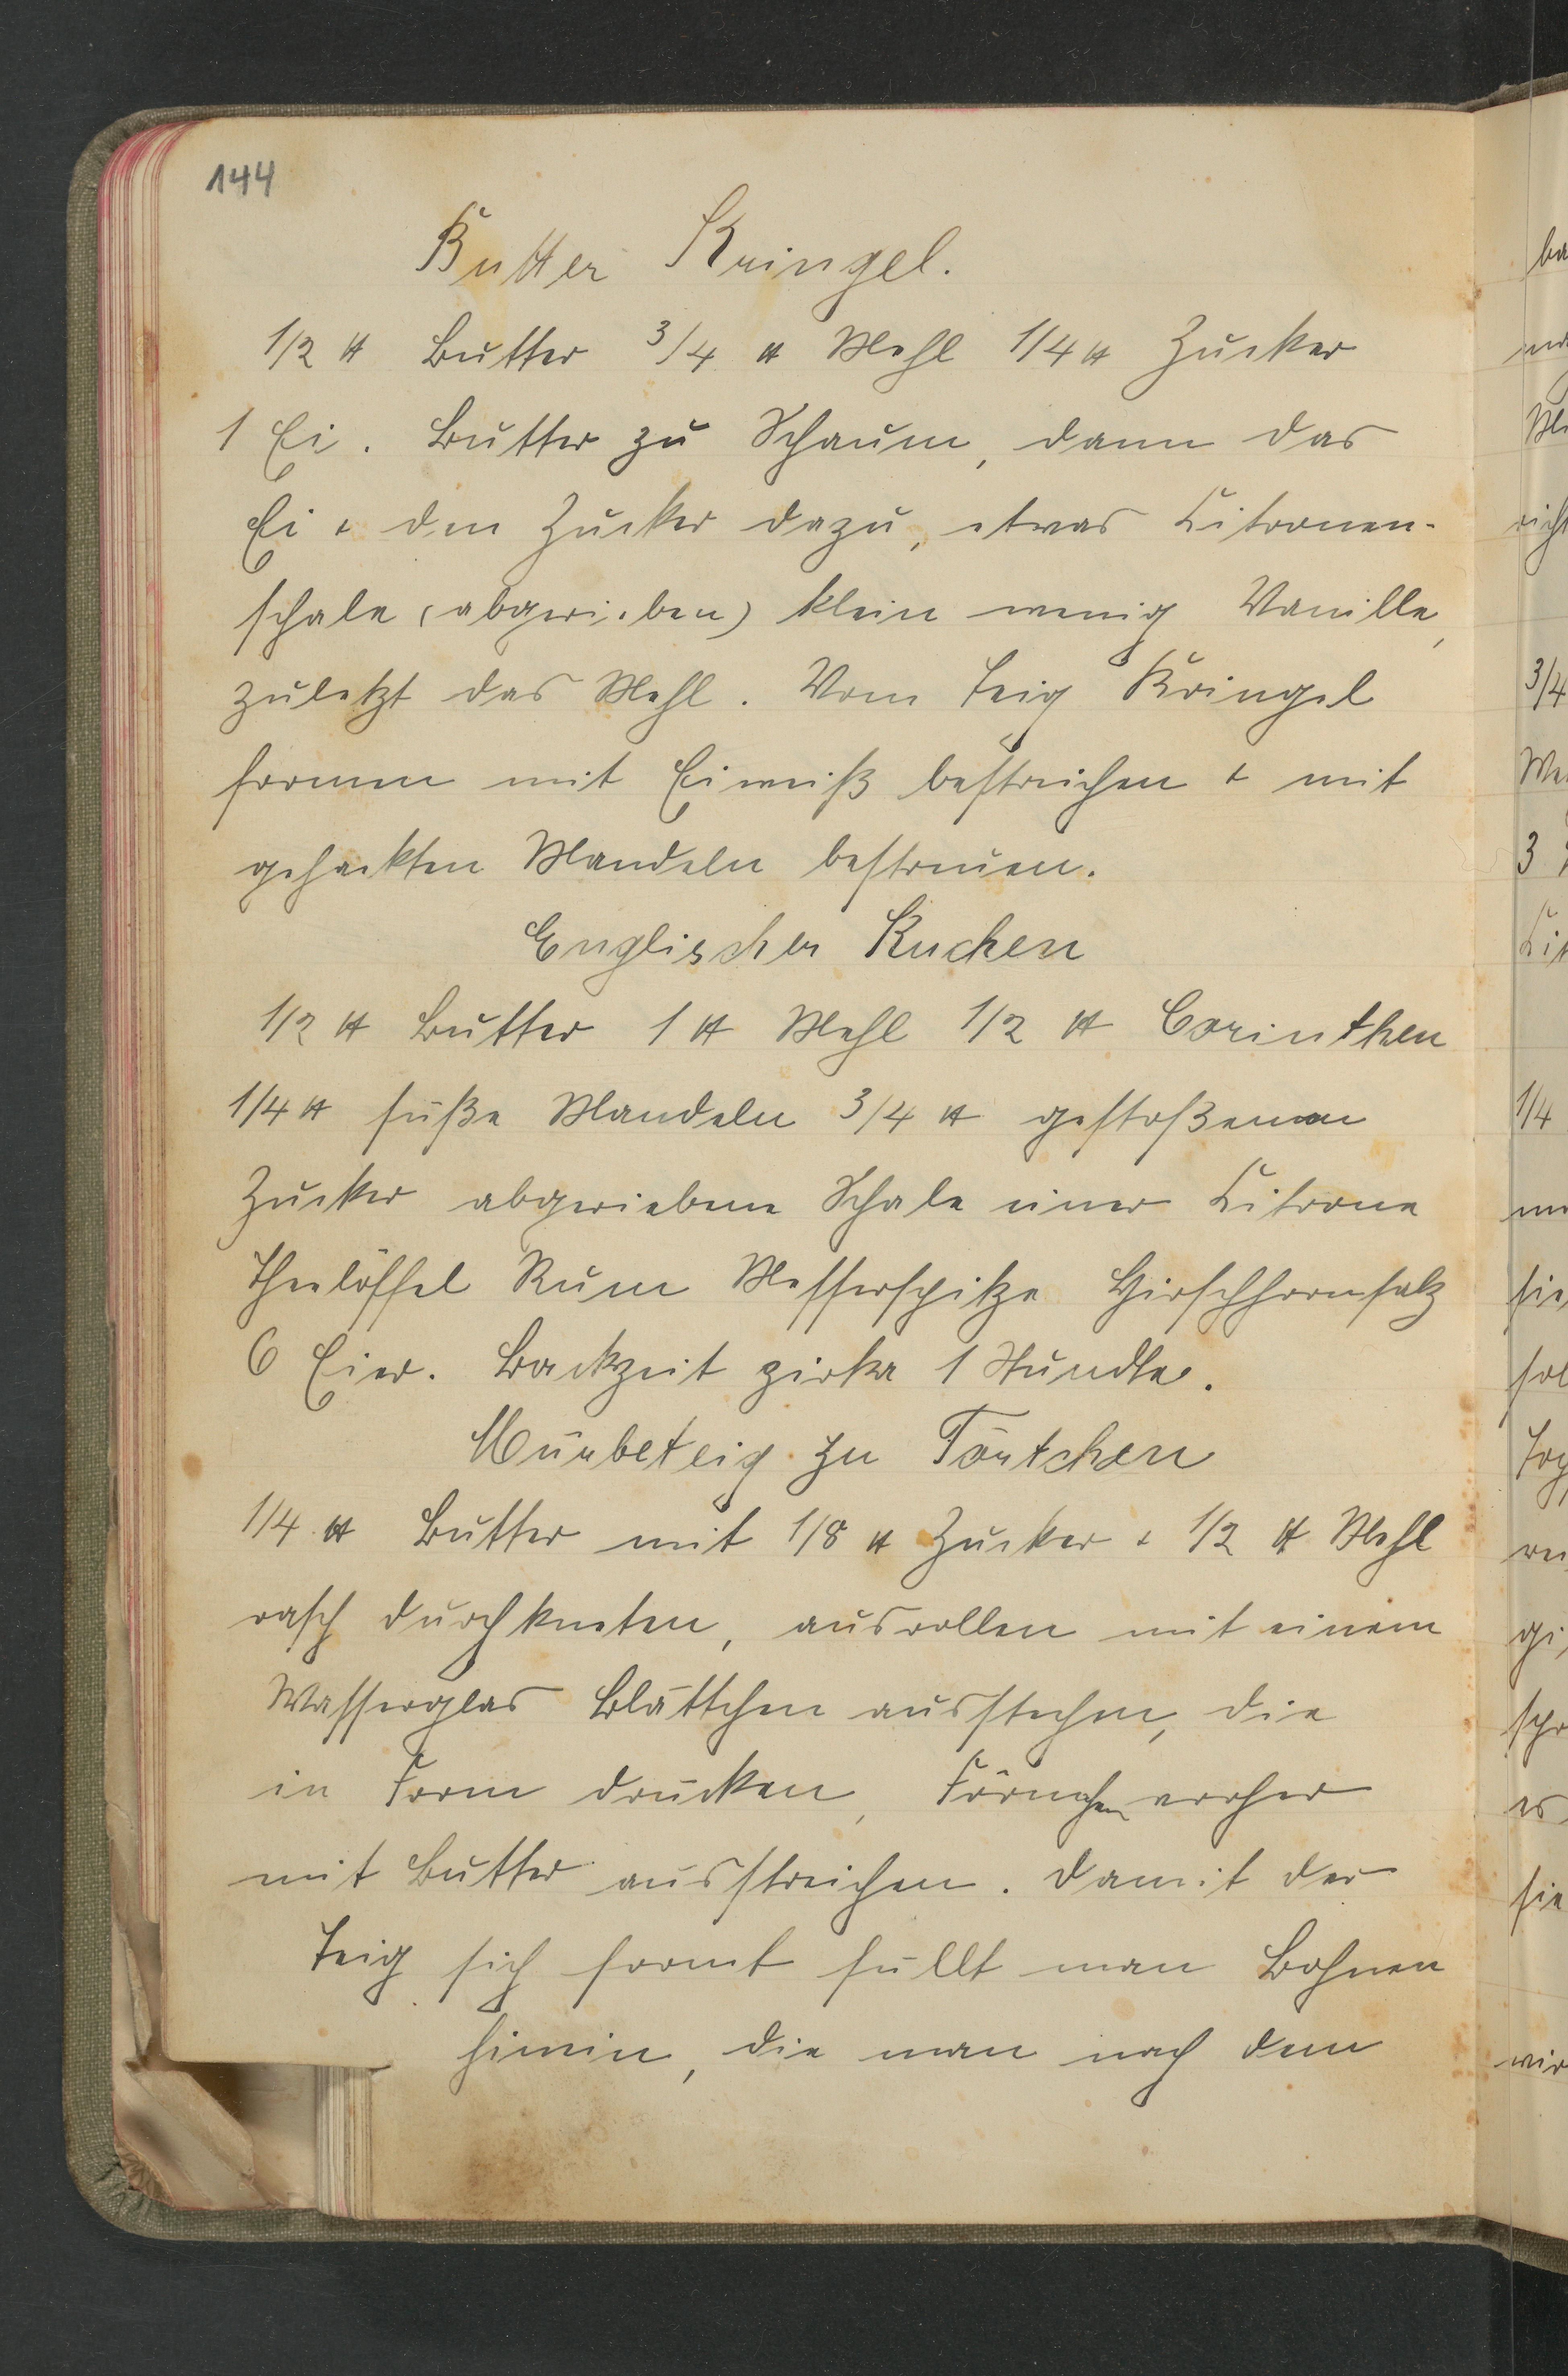 144
Butter Kringel.
1/2 ℔ Butter 3/4 ℔ Mehl 1/4 ℔ Zucker
1 Ei. Butter zu Schaum, dann das
Ei & den Zucker dazu, etwas Citronen-
schale (abgerieben) klein wenig Vanille,
zuletzt das Mehl. Vom Teig Kringel
formen mit Eiweiß bestreichen & mit
gehackten Mandeln bestreuen.
Englischer Kuchen
1/2 ℔ Butter 1 ℔ Mehl 1/2 ℔ Corinthen
1/4 ℔ süße Mandeln 3/4 ℔ gestoßenen
Zucker abgeriebene Schale einer Citrone
Theelöffel Rum Messerspitze Hirschhornsalz
6 Eier. Backzeit zirka 1 Stunde.
Mürbeteig zu Törtchen
1/4 ℔ Butter mit 1/8 ℔ Zucker & 1/2 ℔ Mehl
rasch durchkneten, ausrollen mit einem
Wasserglas Blättchen ausstechen, die
in Form drücken, Förmchen vorher
mit Butter ausstreichen. Damit der
Teig sich formt füllt man Bohnen
hinein, die man nach dem